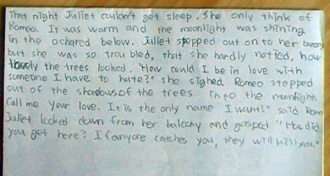 That night Juliet couldn't get sleep. She only think of
Romeo. It was warm and the moonlight was shining
in the ochared below. Juliet stepped out on to her
but she was so troubled, that she hardly noticed, how
lovely the trees looked. "How could I be in love with
someone I have to hate?" she sighed. Romeo stepped
out of the shadows of the trees Into the moonlight.
Call me your love. It is the only name I want!" said Rome
Juliet looked down from her balcony and gasped "How did
you get here? If anyone catches you, they will kill you."